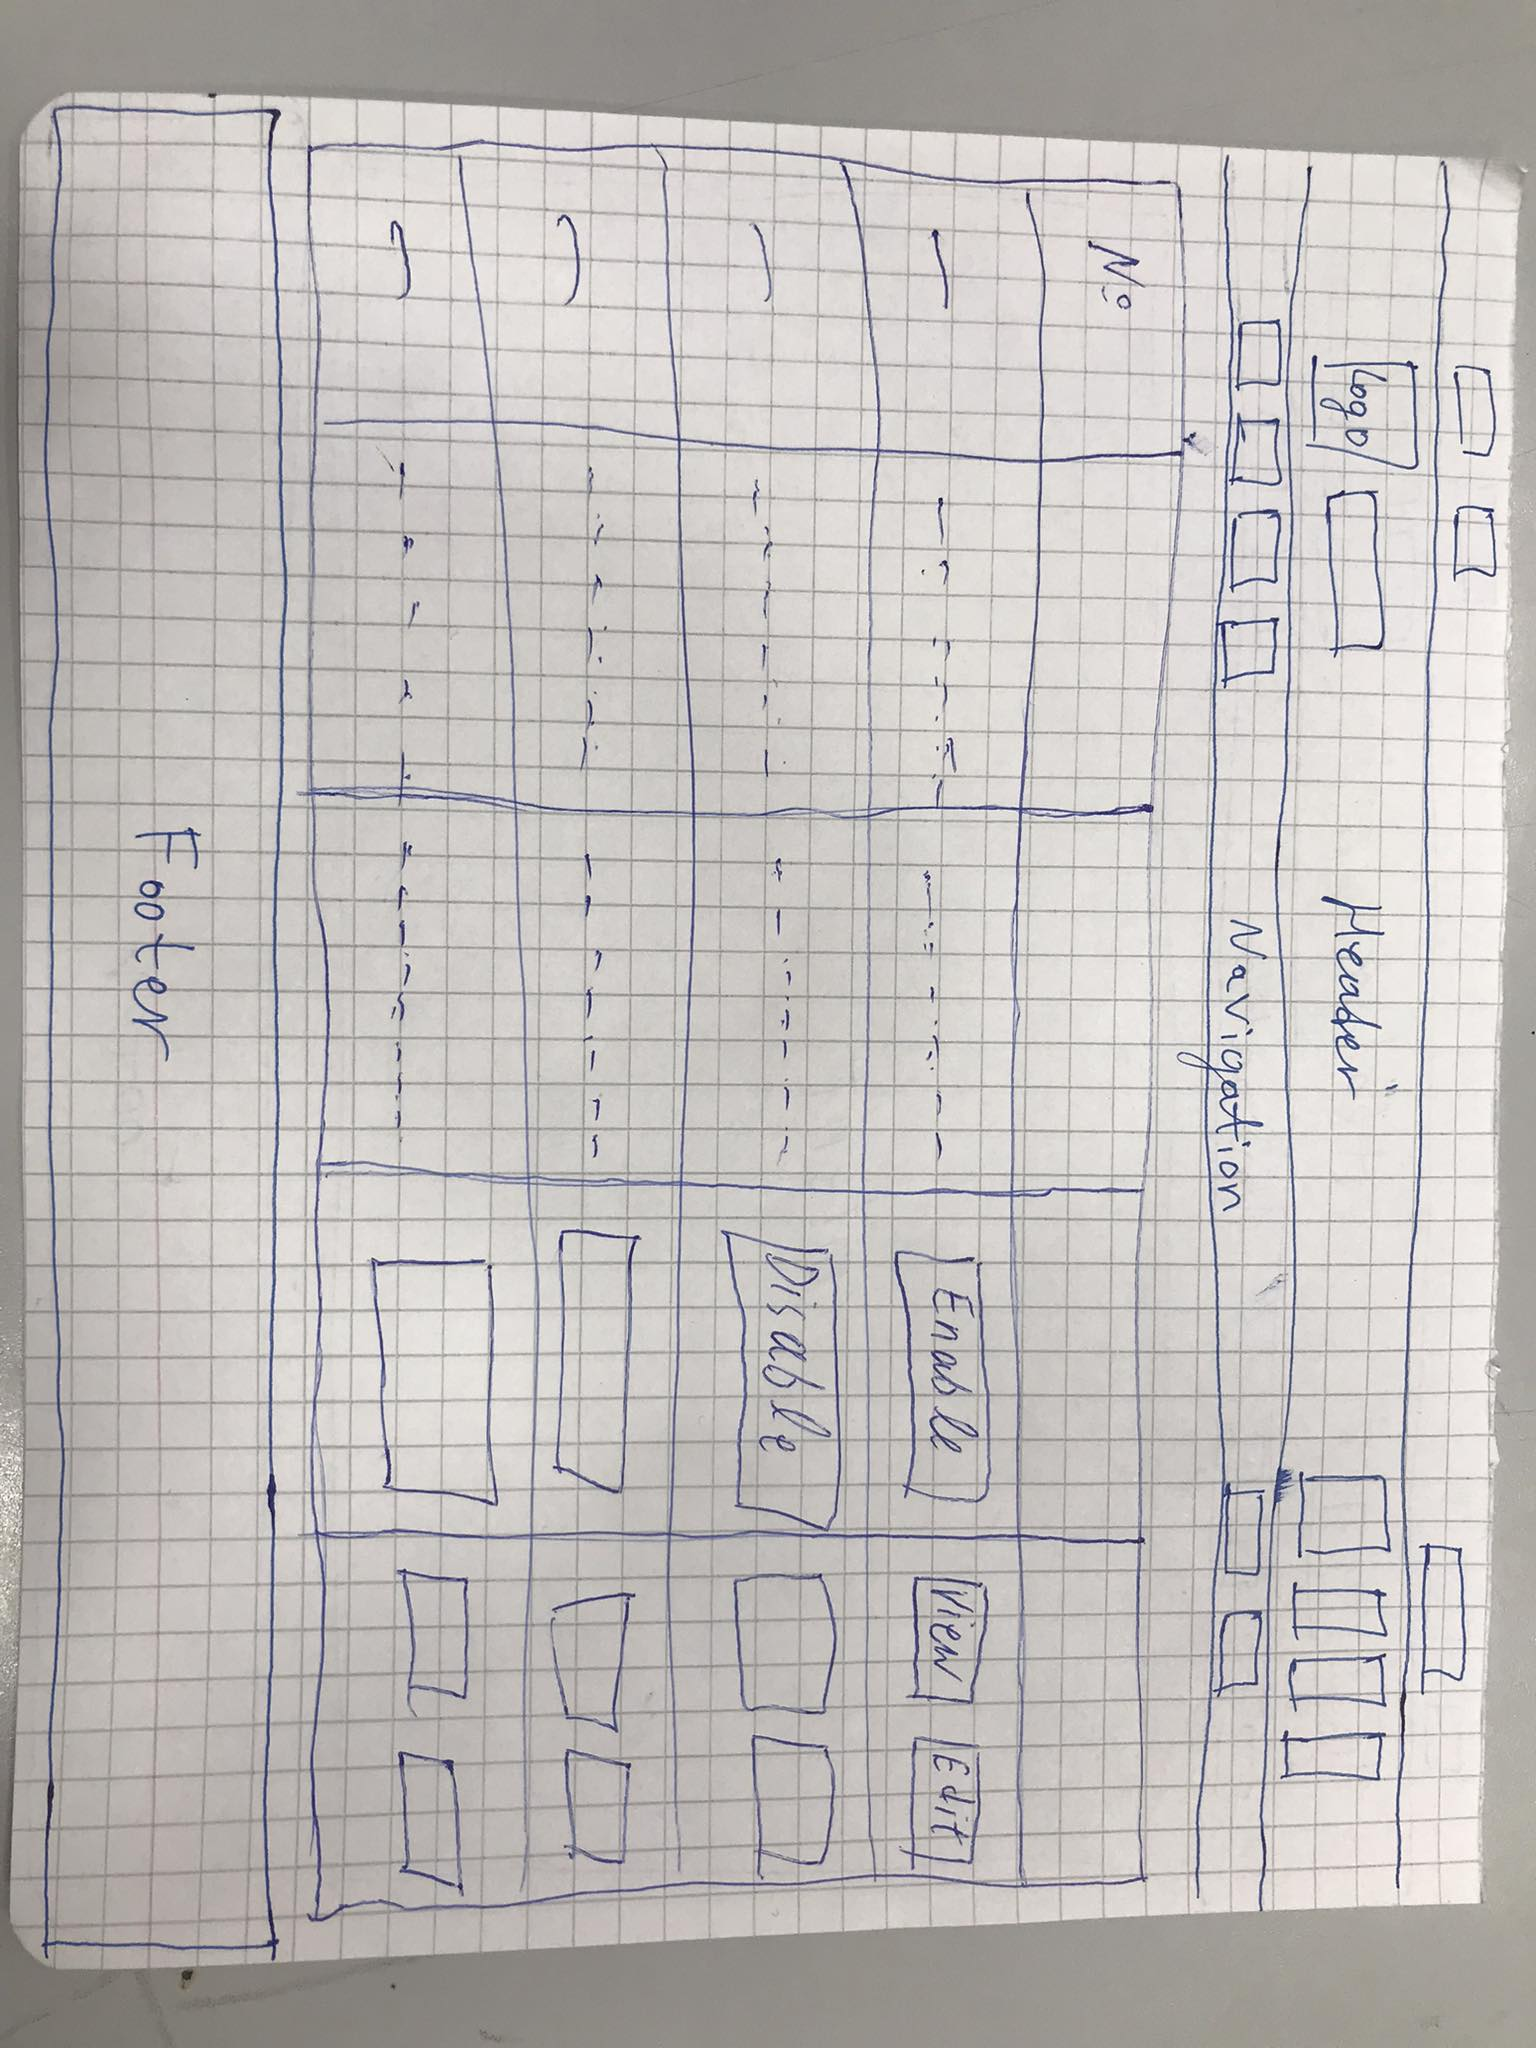 Logo
Header
Navigation
No
Enable
View
Edit
Disable
Footer